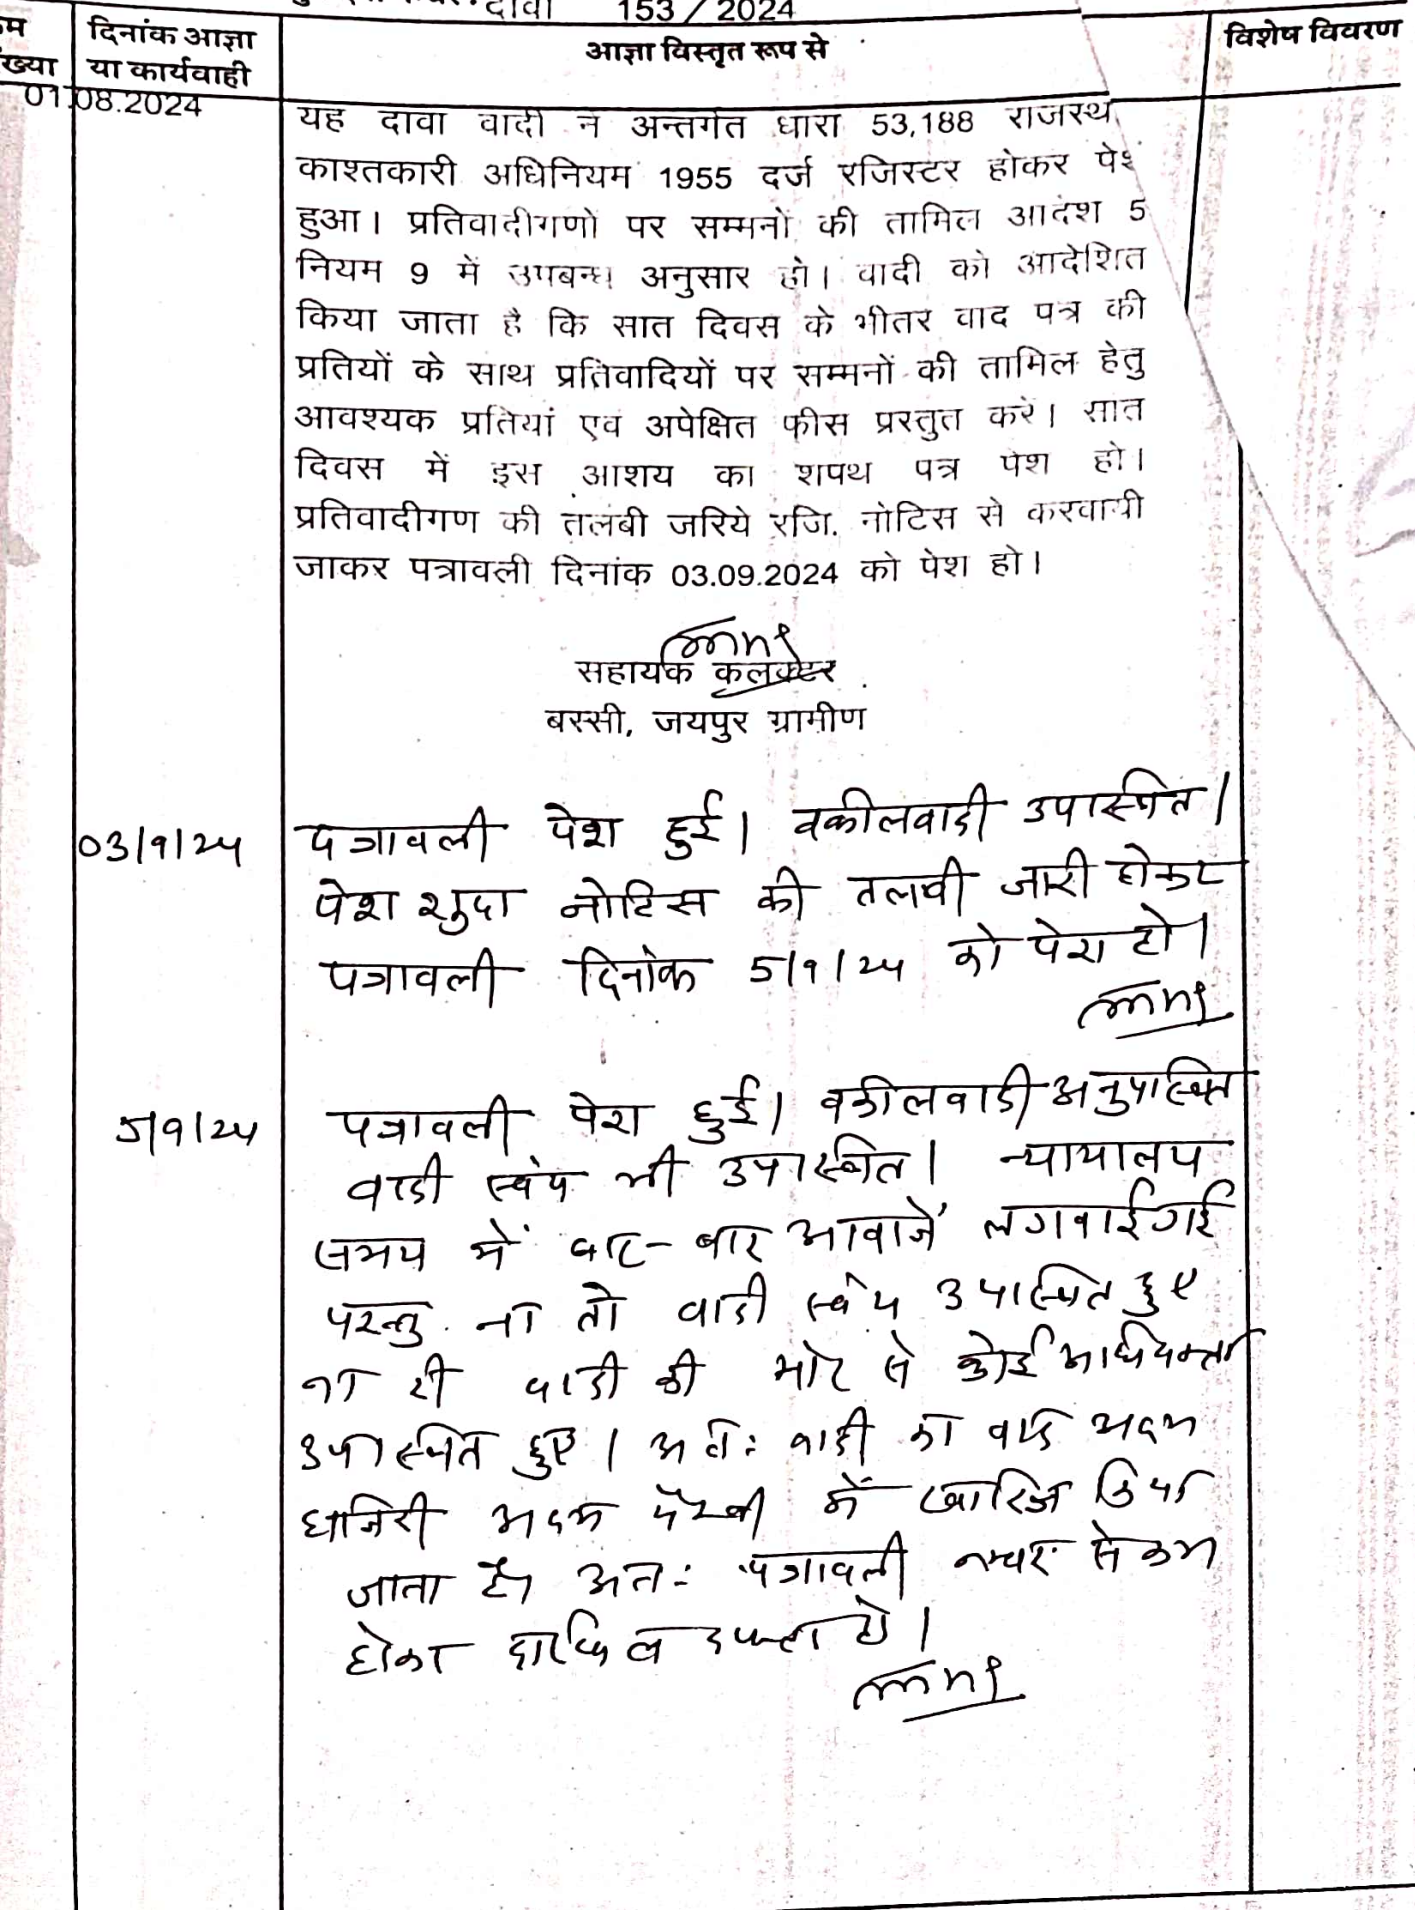 दावा 153 / 2024
दिनांक आज्ञा
या कार्यवाही
आज्ञा विस्तृत रूप से
विशेष विवरण
01.08.2024
यह दावा वादी न अन्तर्गत धारा 53,188 राजस्थ
काश्तकारी अधिनियम 1955 दर्ज रजिस्टर होकर पेश
हुआ। प्रतिवादीगणों पर सम्मनों की तामिल आदेश 5
नियम 9 में उपबन्ध अनुसार हो। वादी को आदेशित
किया जाता है कि सात दिवस के भीतर वाद पत्र की
प्रतियों के साथ प्रतिवादियों पर सम्मनों की तामिल हेतु
आवश्यक प्रतियां एवं अपेक्षित फीस प्रस्तुत करे। सात
दिवस में इस आशय का शपथ पत्र पेश हो।
प्रतिवादीगण की तलबी जरिये रजि. नोटिस से करवायी
जाकर पत्रावली दिनांक 03.09.2024 को पेश हो।
सहायक कलक्टर
बस्सी, जयपुर ग्रामीण
03/9/24
पत्रावली पेश हुई। वकीलवादी उपस्थित।
पेश शुदा नोटिस की तलवी जारी होकर
पत्रावली दिनांक 5/9/24 को पेश हो।
5/9/24
पत्रावली पेश हुई। वकीलवादी अनुपस्थित
वादी स्वंय भी उपस्थित। न्यायालय
समय में बार-बार आवाजें लगवाई गई
परन्तु ना तो वादी स्वंय उपस्थित हुए
ना ही वादी की ओर से कोई अधिवक्ता
उपस्थित हुए। अतः वादी का वाद अदम
हाजिरी अदम पैरवी में खारिज किया
जाता है। अतः पत्रावली नम्बर से कम
होकर दाखिल दफ्तर हो।